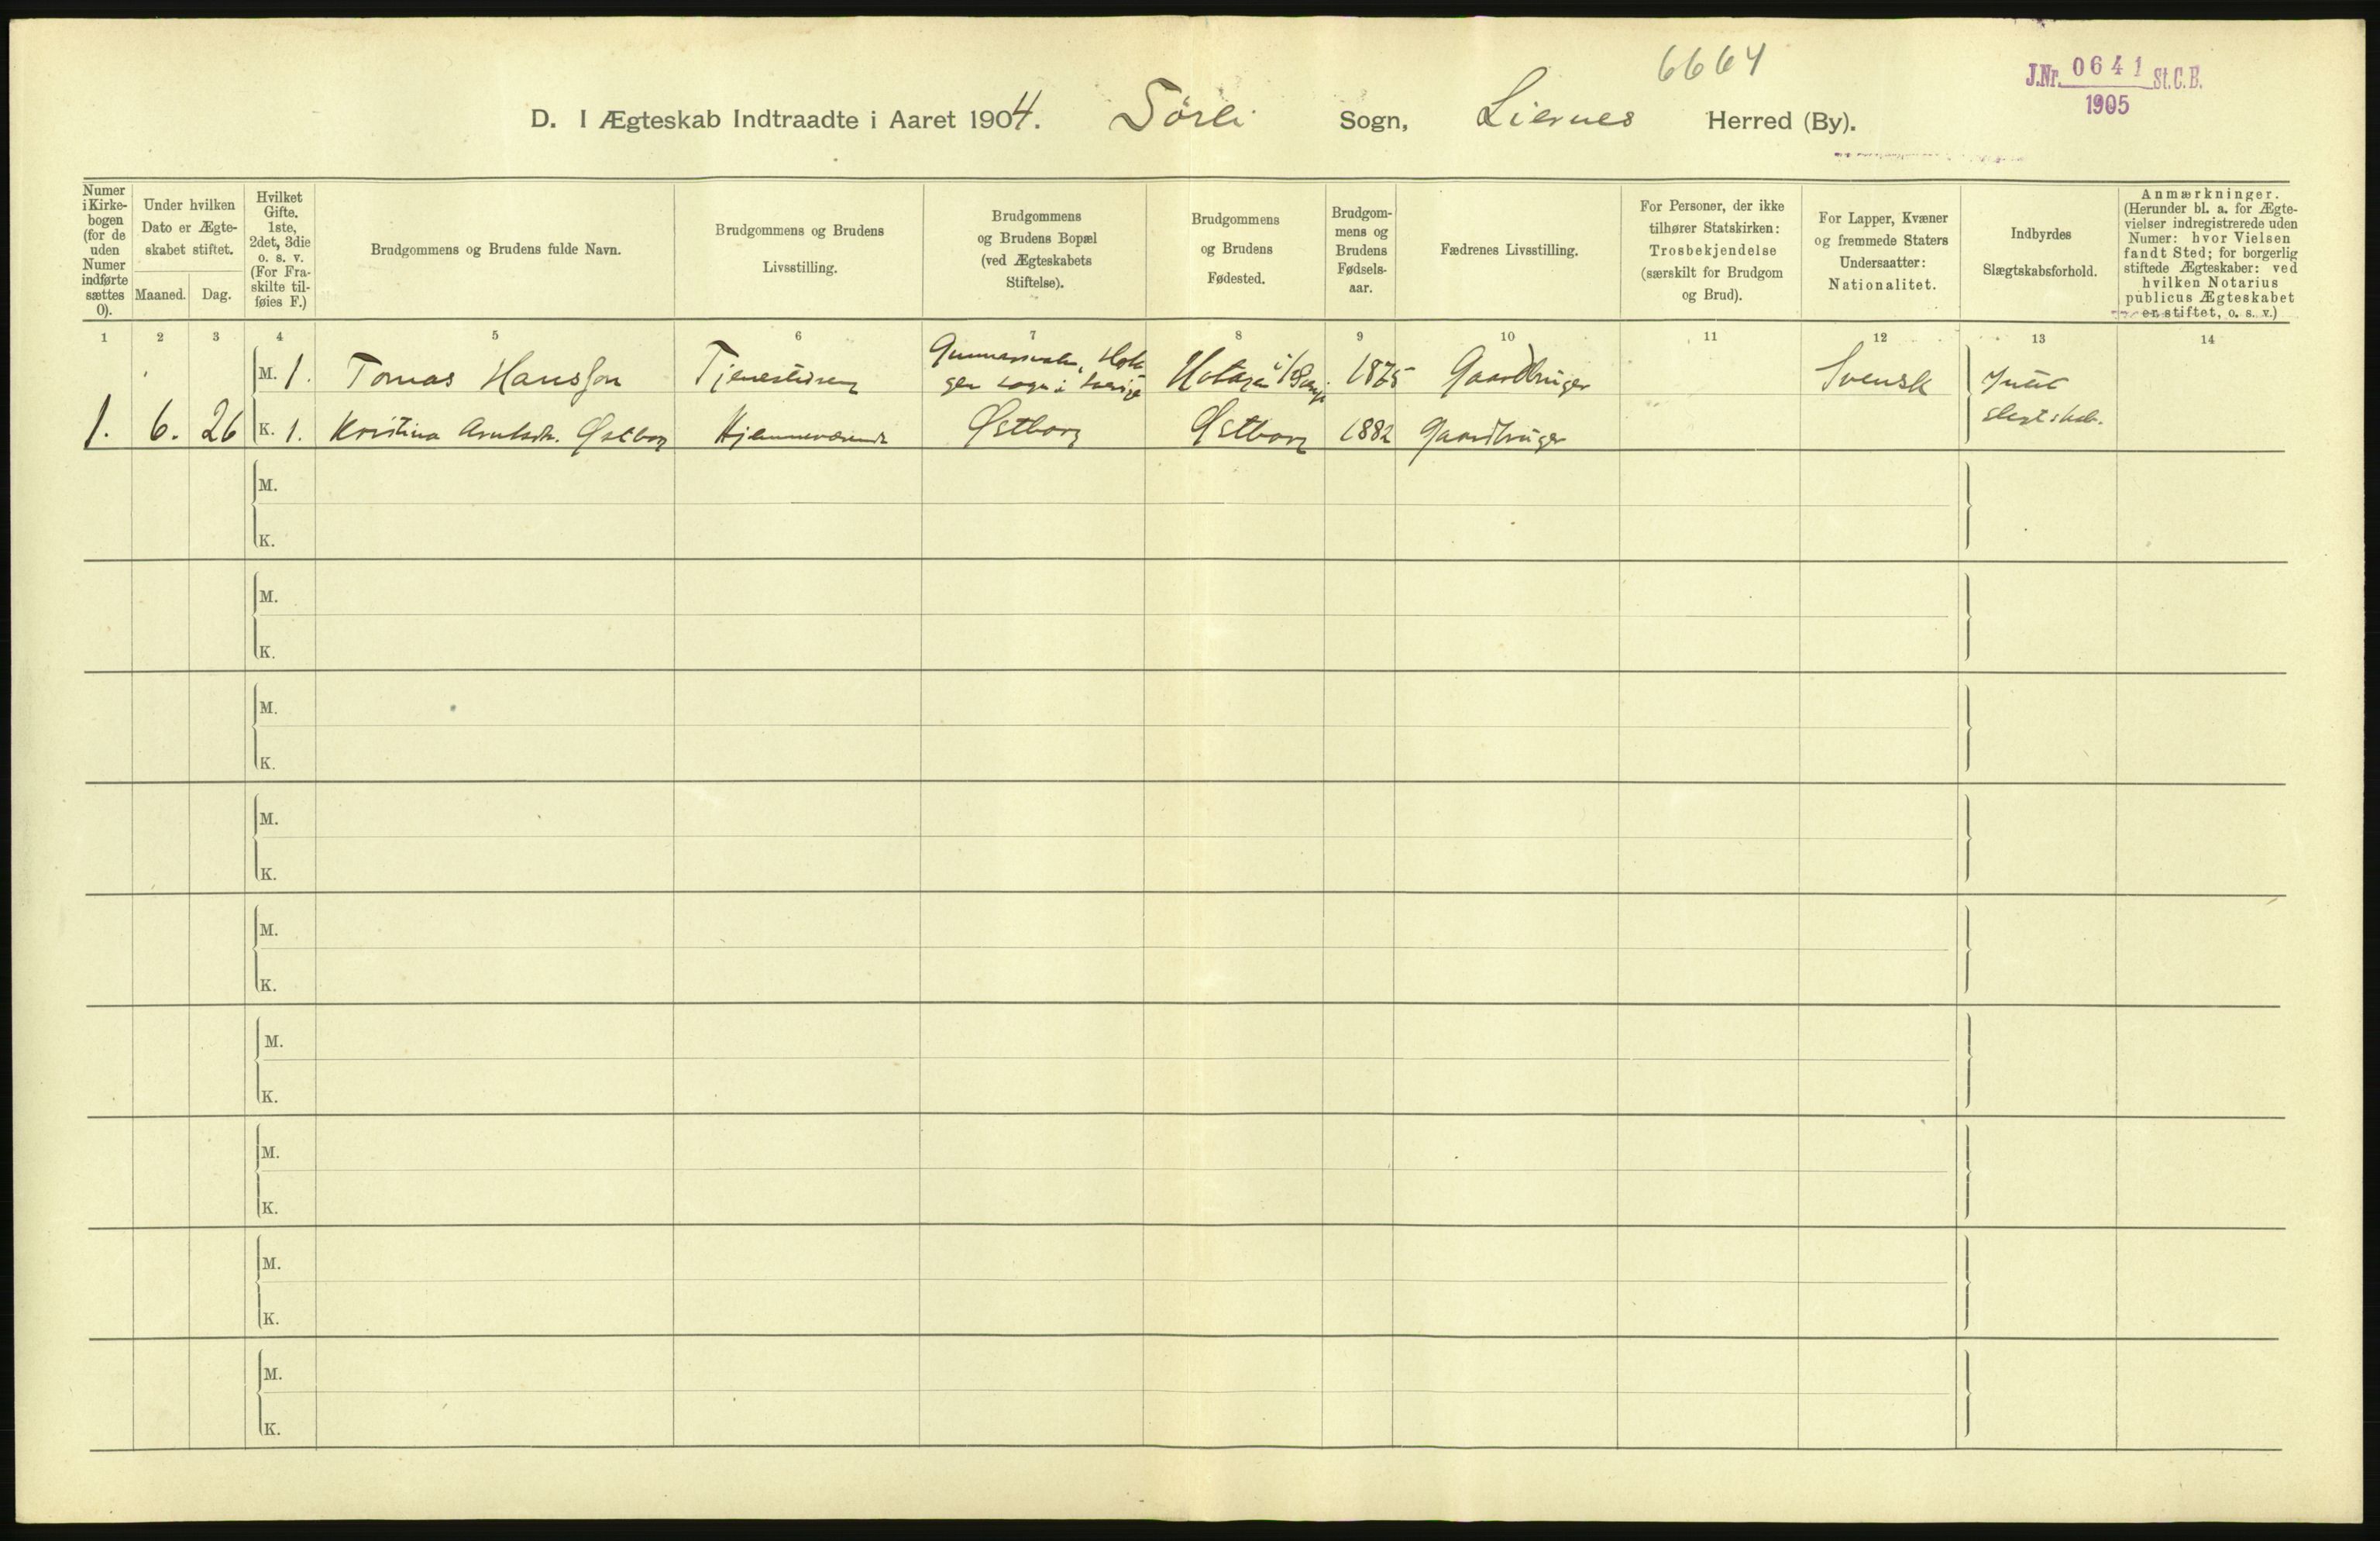 6664
J.Nr. 0641 St.C.B.
1905
D. I Ægteskab Indtraadte i Aaret 1904. Sörli Sogn, Liernes Herred (By).
Numer
i Kirke-
bogen
(for de
uden
Numer
indførte
sættes
0).
Under hvilken
Dato er Ægte-
skabet stiftet.
Maaned. Dag.
Hvilket
Gifte.
1ste,
2det, 3die
o. s. v.
(For Fra-
skilte til-
føies F.)
Brudgommens og Brudens fulde Navn.
Brudgommens og Brudens
Livsstilling.
Brudgommens
og Brudens Bopæl
(ved Ægteskabets
Stiftelse).
Brudgommens
og Brudens
Fødested.
Brudgom-
mens og
Brudens
Fødsels-
aar.
Fædrenes Livsstilling.
For Personer, der ikke
tilhører Statskirken:
Trosbekjendelse
(særskilt for Brudgom
og Brud).
For Lapper, Kvæner
og fremmede Staters
Undersaatter:
Nationalitet.
Indbyrdes
Slægtskabsforhold.
Anmærkninger.
(Herunder bl. a. for Ægte-
vielser indregistrerede uden
Numer: hvor Vielsen
fandt Sted; for borgerlig
stiftede Ægteskaber: ved
hvilken Notarius
publicus Ægteskabet
er stiftet, o. s. v.)
1 2 3 4 5 6 7 8 9 10 11 12 13 14
M. 1. Tomas Hansson sogn i 1875 Gaardbruger Svensk Intet
1. 6. 26 K. 1. Kristina Østborg Hjemmeværende Østborg Østborg 1882 Gaardbruger slegtskab.
M.
K.
M.
K.
M.
K.
M.
K.
M.
K.
M.
K.
M.
K.
M.
K.
M.
K.